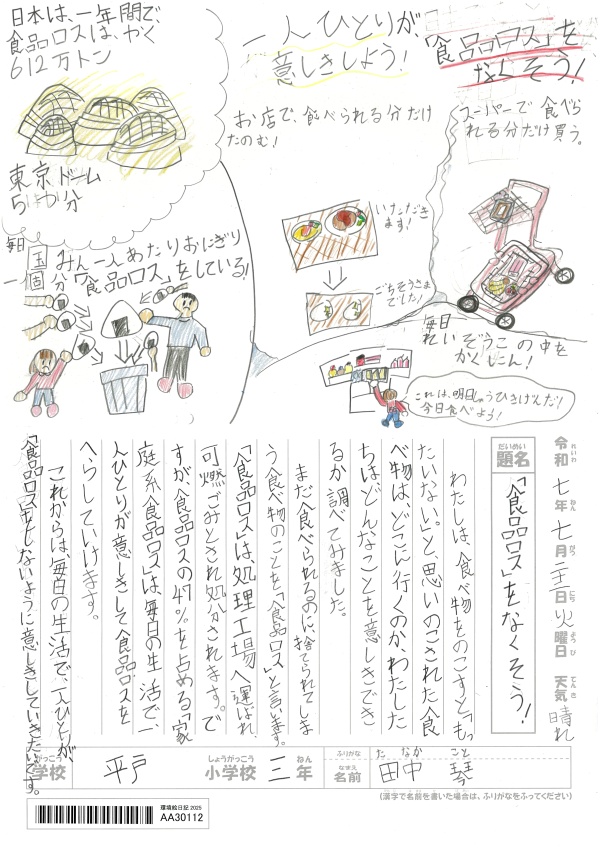 日本は、一年間で、
食品ロスは、やく
612万トン
東京ドーム
5つ分
毎日
国みん一人あたりおにぎり
一個分「食品ロス」をしている!
一人ひとりが、
意しきしよう!
お店で、食べられる分だけ
たのむ!
いただき
ます!
ごちそうさま
でした!
「食品ロス」を
なくそう!
スーパーで食べら
れる分だけ買う。
毎日
れいぞうこの中を
かくにん!
これは、明日しょうひきげんだ!
今日食べよう!
令和七年七月二十二日火曜日 天気晴れ
れいわ ねん がつ にち ようび てんき
だいめい
題名
「食品ロス」をなくそう!
わたしは、食べ物をのこすと「もっ
たいない。」と、思いのこされた食
べ物は、どこに行くのか、わたした
ちは、どんなことを意しきでき
るか調べてみました。
まだ食べられるのに、捨てられてしま
う食べ物のことを「食品ロス」と言います。
「食品ロス」は、処理工場へ運ばれ、
可燃ごみとされ処分されます。で
すが、食品ロスの47%を占める「家
庭系食品ロス」は、毎日の生活で、一
人ひとりが意しきして食品ロスを
へらしていけます。
これからは、毎日の生活で、一人ひとりが、
「食品ロス」をしないように意しきしていきたいです。
がっこう
学校
平戸
しょうがっこう
小学校
三
ねん
年
ふりがな
なまえ
名前
たなか こと
田中 琴
(漢字で名前を書いた場合は、ふりがなをふってください)
環境絵日記 2025
AA30112